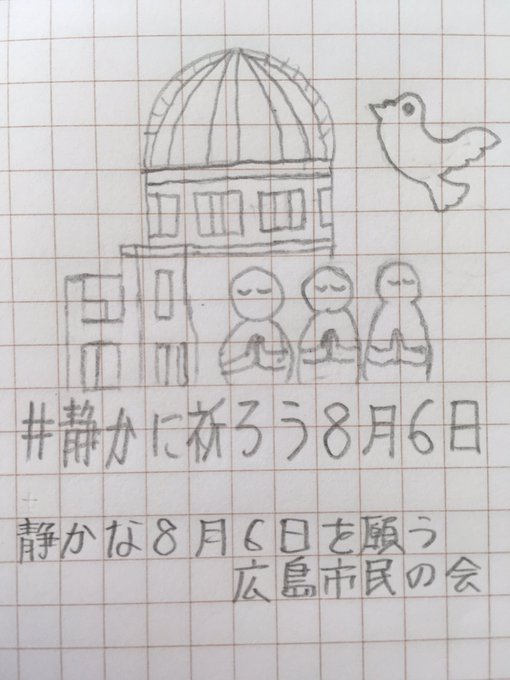 #静かに祈ろう8月6日
静かな8月6日を願う
広島市民の会